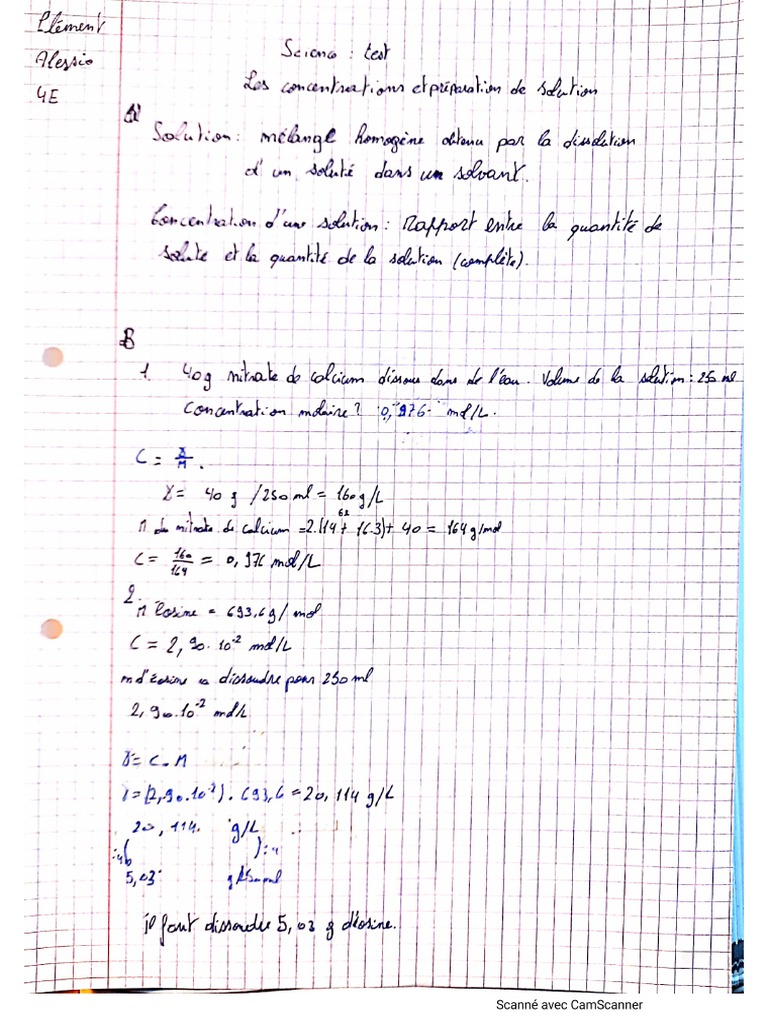 Clément
Alessio
4E
Science : test
Les concentrations et préparation de solution
A
Solution : mélange homogène obtenu par la dissolution
d'un soluté dans un solvant.
Concentration d'une solution : Rapport entre la quantité de
soluté et la quantité de la solution (complète).
B
1. 40g nitrate de calcium dissous dans de l'eau. Volume de la solution : 250 ml
Concentration molaire ? 0,976 mol/L.
C = γ/M.
γ = 40 g / 250 ml = 160 g/L
62
M de nitrate de calcium = 2.(14 + 16.3) + 40 = 164 g/mol
C = 160/164 = 0,976 mol/L
2.
M Eosine = 693,6 g/mol
C = 2,90.10⁻² mol/L
m d'éosine a dissoudre pour 250 ml
2,90.10⁻² mol/L
γ = C.M
γ = (2,90.10⁻²).693,6 = 20,114 g/L
20,114 g/L
:4 ( ) :4
5,03 g/250ml
il faut dissoudre 5,03 g d'éosine.
Scanné avec CamScanner